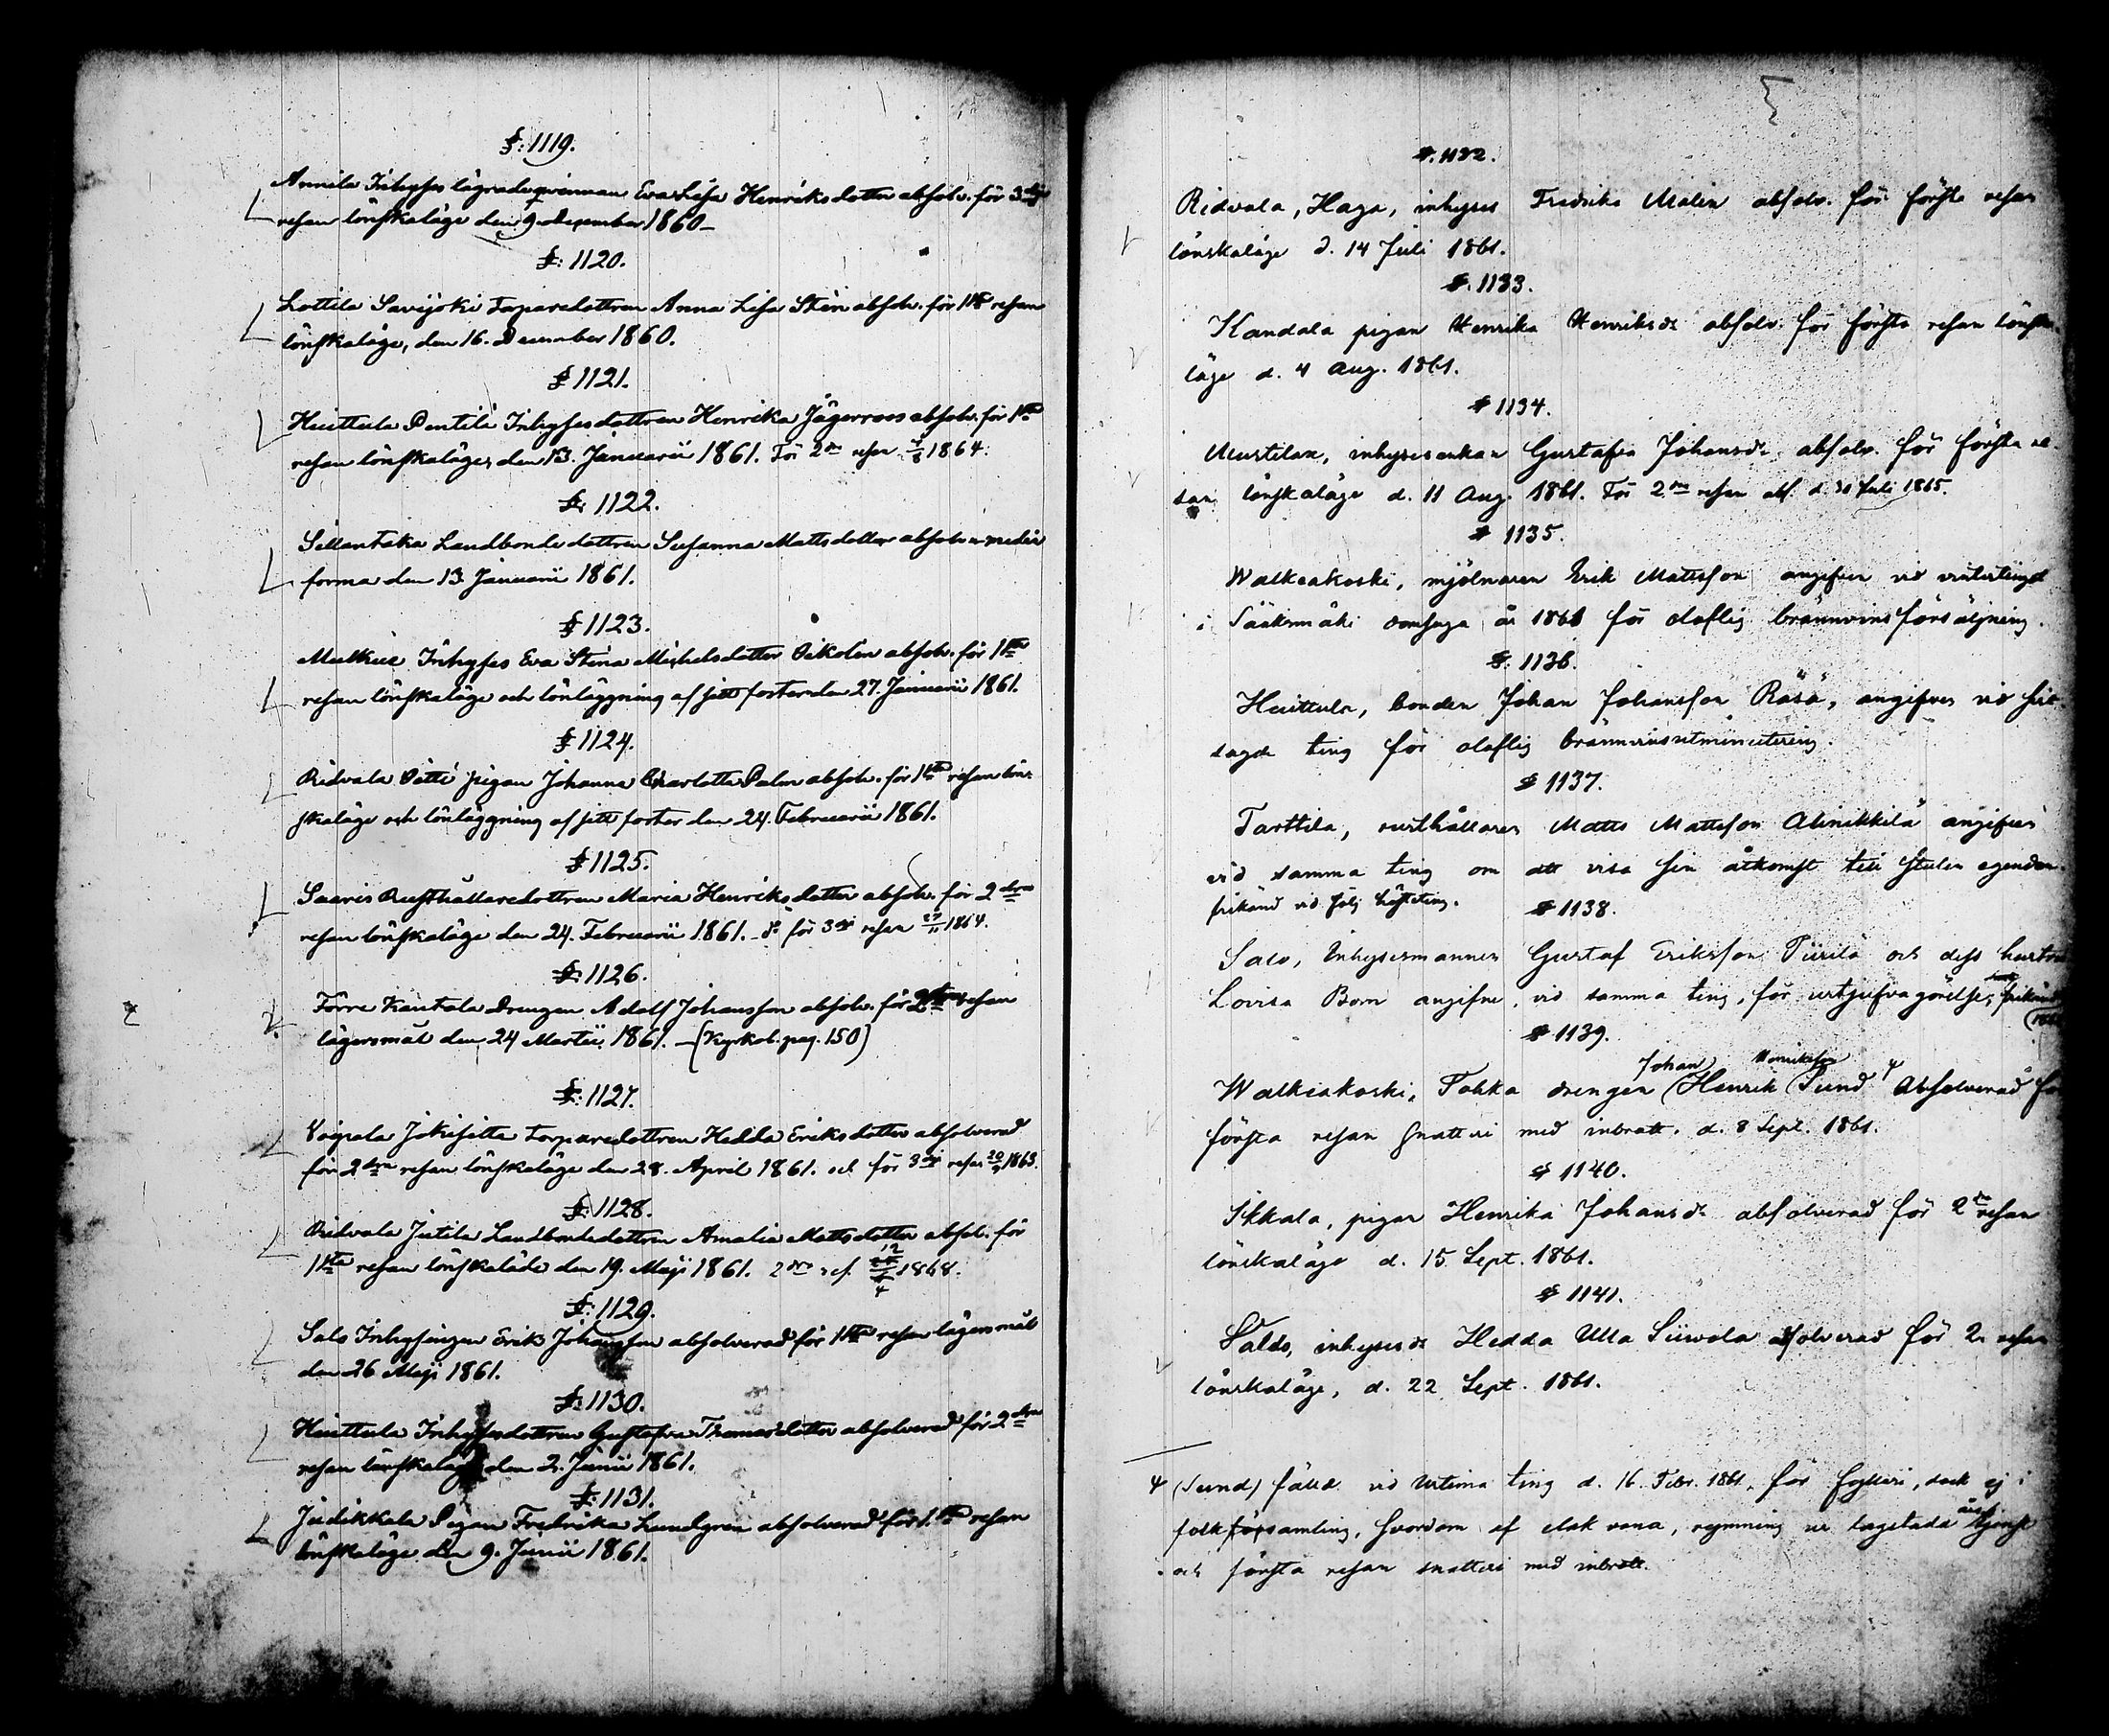 §: 1119.
Annila Inhyses lägradeqvinnan Eva Lisa Henriksdotter absolv. för 3dje
resan lönskaläge den 9 December 1860_
§: 1120.
Lottila Savijoki Torparedottren Anna Lisa Stén absolv. för 1sta resan
lönskaläge, den 16. December 1860.
§ 1121.
Huittula Pentili Inhysesdottren Henrika Jägerroos absolv. för 1sta
resan lönskaläge, den 13. Januarii 1861. För 2dra resan 1864.
§: 1122.
Sillantaka Landbonde dottren Susanna Mattsdotter absolv.
forma den 13. Januarii 1861.
§ 1123.
Inhyses Eva Stina Michelsdotter absolv. för 1sta
resan lönskaläge och lönläggning af sitt foster den 27. Januarii 1861.
§ 1124.
Ridvala pigan Johanna Charlotta Palm absolv. för 1sta resan lön-
skaläge och lönläggning af sitt foster den 24. Februarii 1861.
§ 1125.
Saaris Rusthållaredottren Maria Henriksdotter absolv. för 2dra
resan lönskaläge den 24. Februarii 1861. _ do för 3dje resan 27/11 1864.
§: 1126.
Drengen Adolf Johansson absolv. för 2dra resan
lägersmål den 24 Martii 1861. _ (Kyrkob. pag. 150)
§: 1127.
Voipala Jokisilta Torparedottren Hedda Eriksdotter absolverad
för 2dra resan lönskaläge den 28. April 1861. och för 3dje resan 1863.
§: 1128.
Ridvala Jutila Landbondedottren Amalia Mattsdotter absol. för
1sta resan lönskaläde den 19. Maji 1861. 2dra res. 12/4 1868.
§: 1129.
Salo Inhysingen Erik Johansson absolverad för 1sta resan lägersmål
den 26 Maji 1861.
§: 1130.
Huittula Inhysesdottren Gustafva Thomasdotter absolverad för 2dra
resan lönskaläge den 2. Junii 1861.
§: 1131.
Judikkala Pigan Fredrika Lundgren absolverad för 1.sta resan
lönskaläge den 9. Junii 1861.
§. 1132.
Ridvala, Haga, inhyses Fredrika Malin absolv. för första resan
lönskaläge d. 14 Juli 1861.
§. 1133.
Kandala pigan Henrika Henriksdr absolv. för första resan lönska-
läge d. 4 Aug. 1861.
§ 1134.
inhysesenkan Gustafva Johansdr. absolv. för första re-
san lönskaläge d. 11 Aug. 1861. För 2dra resan abs. d. 30 Juli 1865.
§ 1135.
Walkeakoski, mjölnaren Erik Mattsson angifven vid vintertinget
i Sääksmäki domsaga år 1861 för olaflig brännvinsförsäljning.
§: 1136.
Huittula, bonden Johan Johansson Räsä, angifven vid sist-
sagde ting för olaflig brännvinsutminutering.
§ 1137.
Tarttila, rusthållaren Matts Mattsson Alinikkilä angifven
vid samma ting om att visa sin åtkomst till stulen egendom.
frikänd vid följ. höstting.
§ 1138.
Salo, Inhysesmannen Gustaf Eriksson Piirilä och dess hustru
Lovisa Born angifne, vid samma ting, för urtjufvagörelse, frikände
§ 1139.
Johan Henriksson
Walkeakoski, Tokka drengen (Henrik Sund Ψ Absolverad för
första resan snatteri med inbrott. d. 8 Sept. 1861.
§ 1140.
Ikkala, pigan Henrika Johansdr absolverad för 2dra resan
lönskaläge d. 15 Sept. 1861.
§ 1141.
inhysesdr Hedda Ulla Siivola absolverad för 2. resan
lönskaläge, d. 22 Sept. 1861.
Ψ (Sund) fälld vid Urtima ting d. 16. Febr. 1861, för fylleri, dock ej i
folkförsamling, svordom af elak vana, rymning ur lagstadd årstjenst
och första resan snatteri med inbrott.